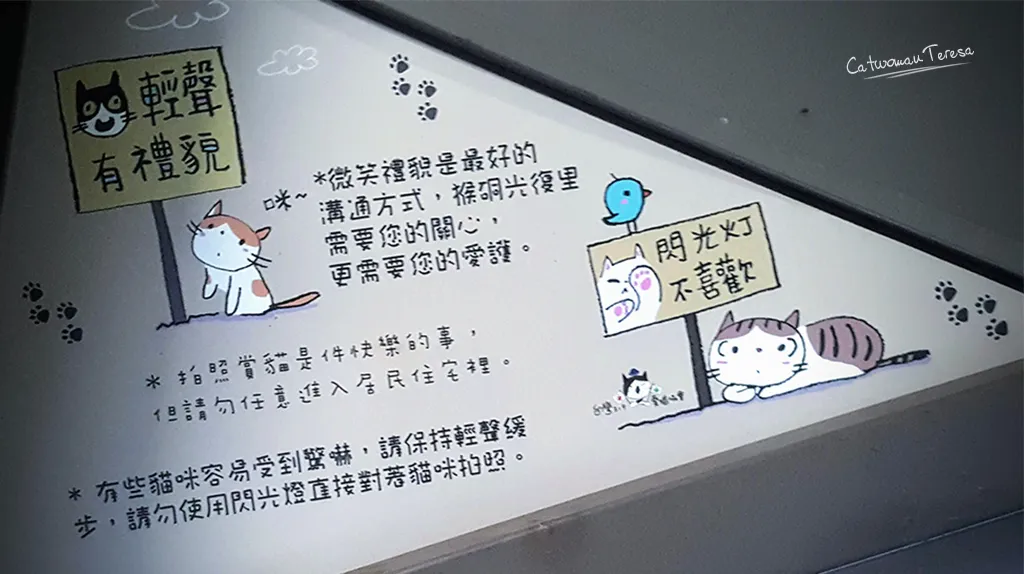 CatwomanTeresa
輕聲
有禮貌
咪~
*微笑禮貌是最好的
溝通方式，猴硐光復里
需要您的關心，
更需要您的愛護。
閃光灯
不喜歡
* 拍照賞貓是件快樂的事，
但請勿任意進入居民住宅裡。
* 有些貓咪容易受到驚嚇，請保持輕聲緩
步，請勿使用閃光燈直接對著貓咪拍照。